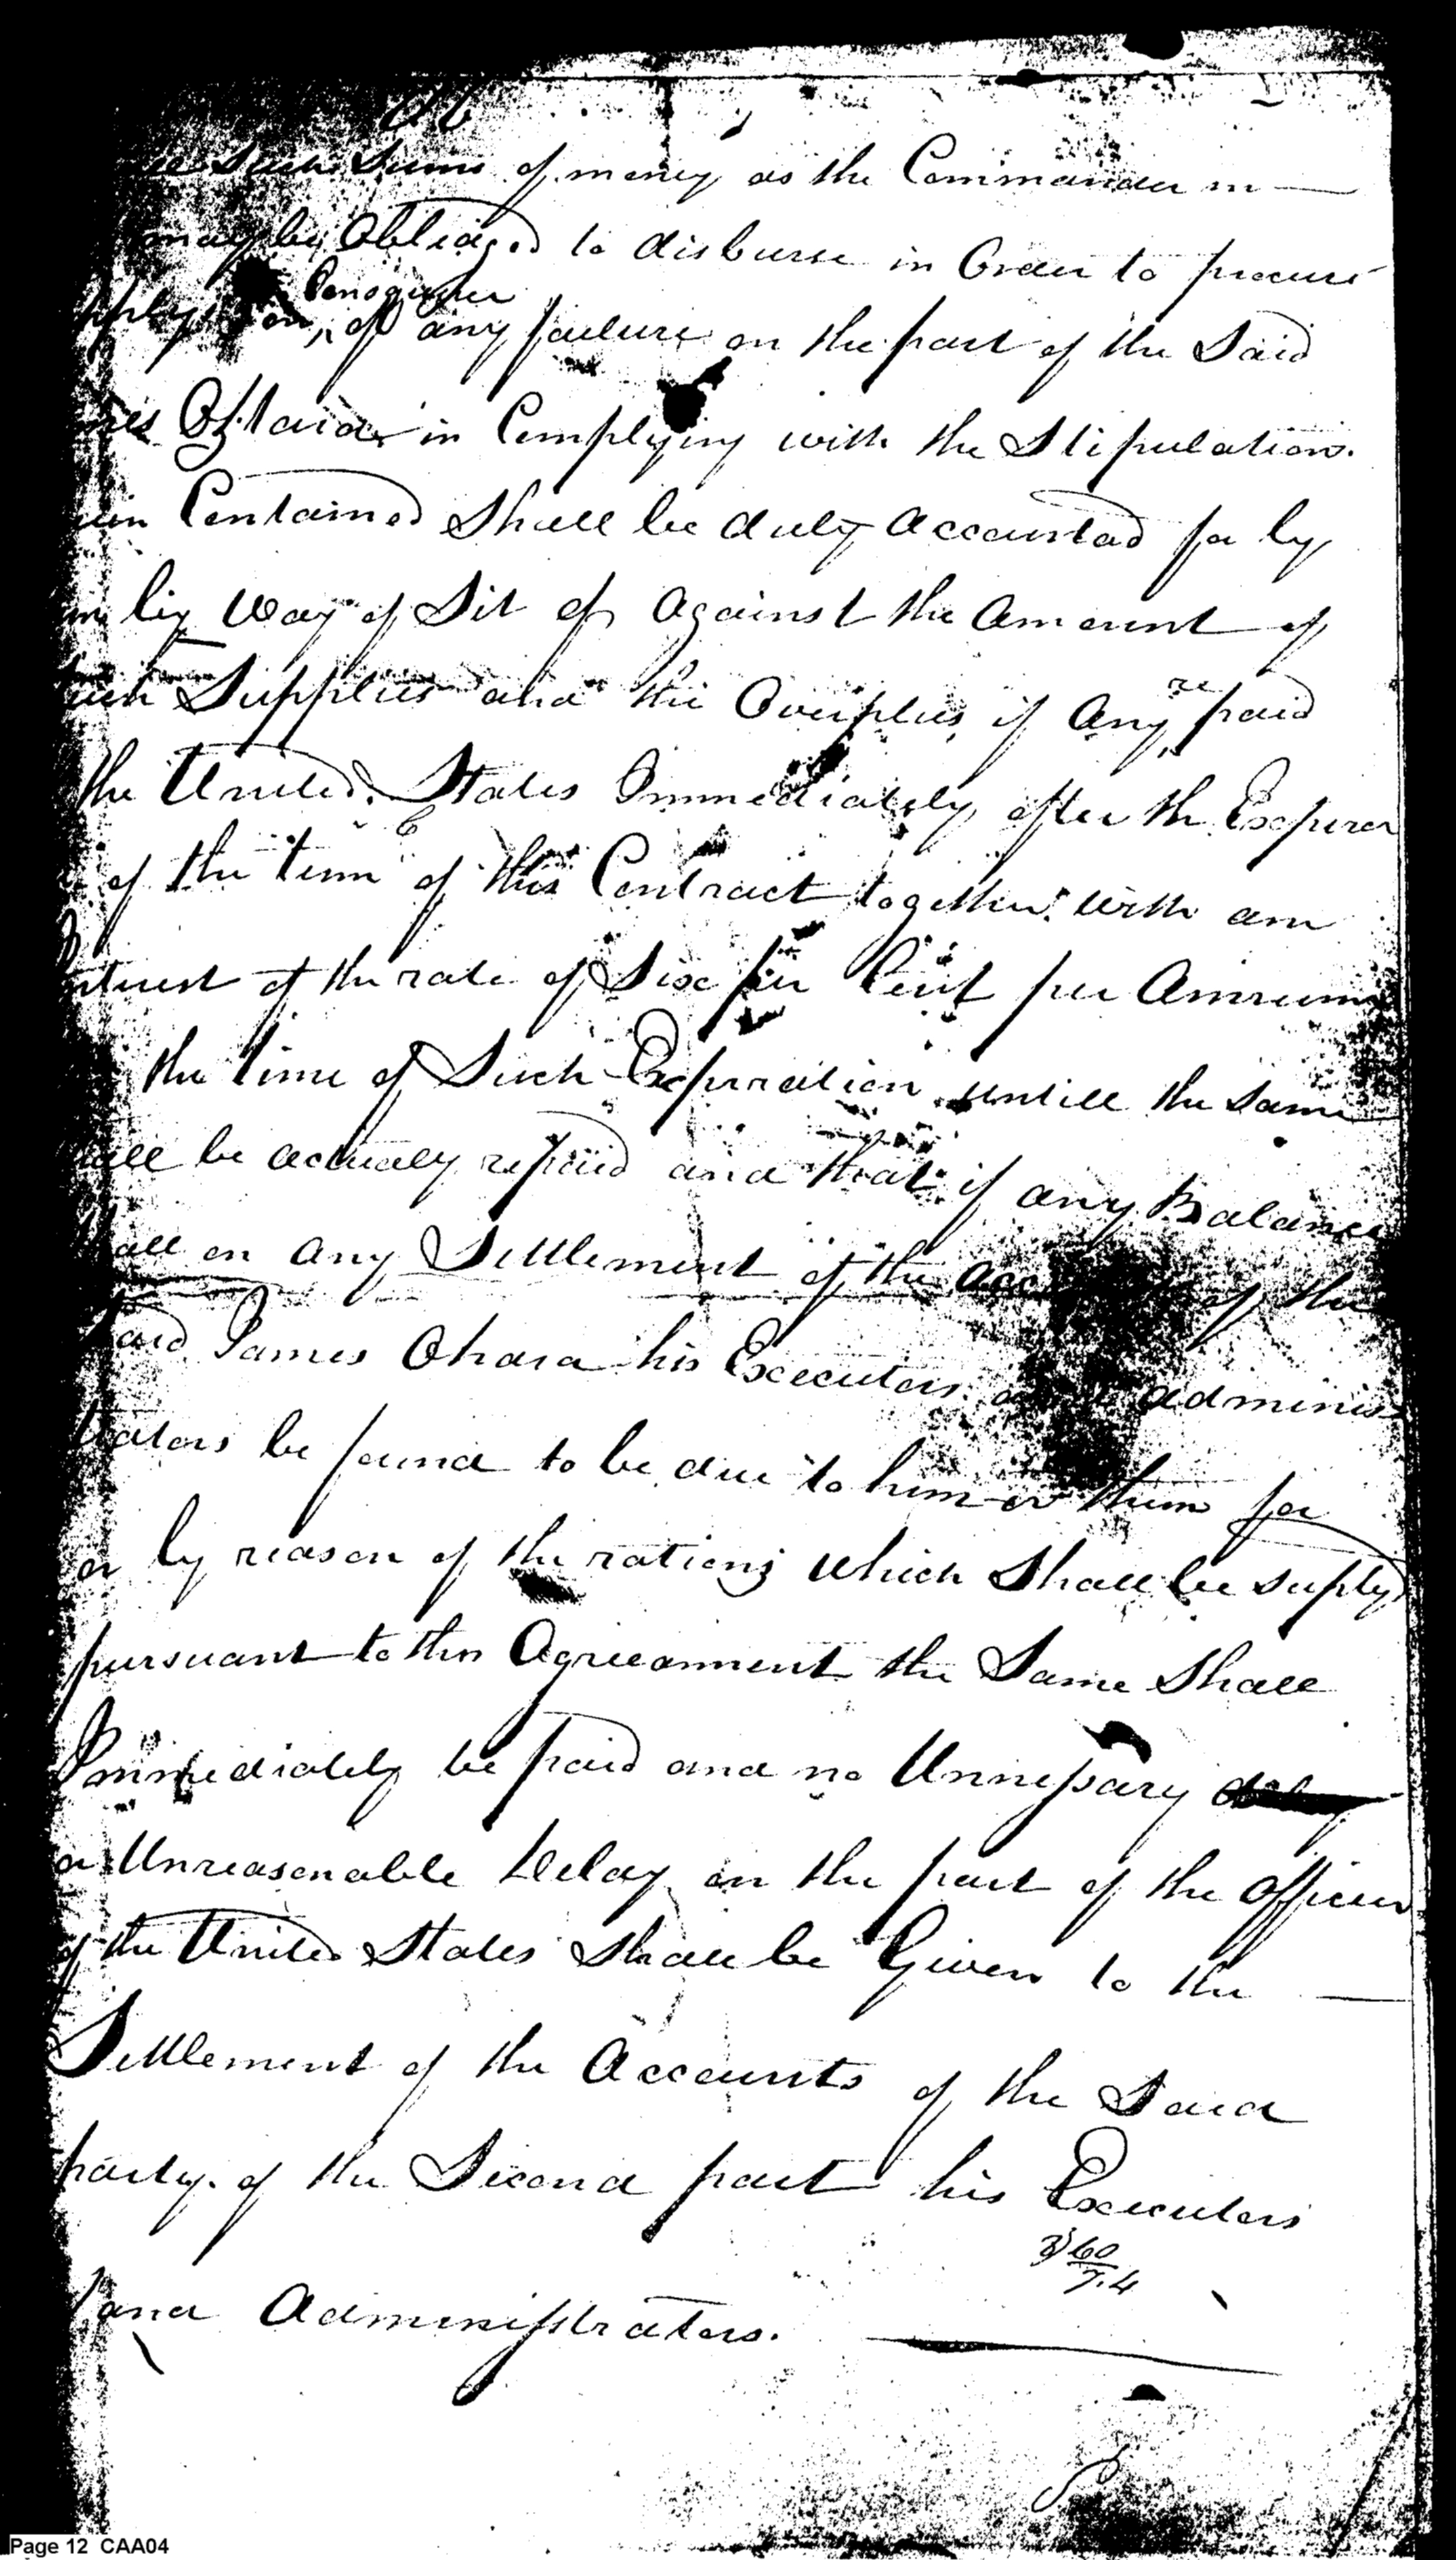 such Sums of money as the Commander in
may be Obliged to disburse in Order to procure
Consequence
on, of any failure on the part of the Said
OHara in Complying with the Stipulation.
Contained Shall be duly accounted for by
by Way of Sit of Against the Amount of
Supplies and the Overplus if Any re paid
the United States Immediately after the Expiration
of the term of this Contract together with an
at the rate of Six per Cent per Annum
the time of Such Expiration untill the same
be actualy repaid and that if any Balance
on any Settlement of the of the
Said James Ohara his Executors adminis
trators be found to be due to him or them for
or by reason of the rations which Shall be suply
pursuant to this Agreeanment the Same Shall
Immediately be paid and no Unnessary
or Unreasonable Delay on the part of the officers
of the United States Shall be Given to the
Settlement of the Accounts of the Said
party of the Second part his Executors
3) 60
7.4
and Administrators.
Page 12 CAA04